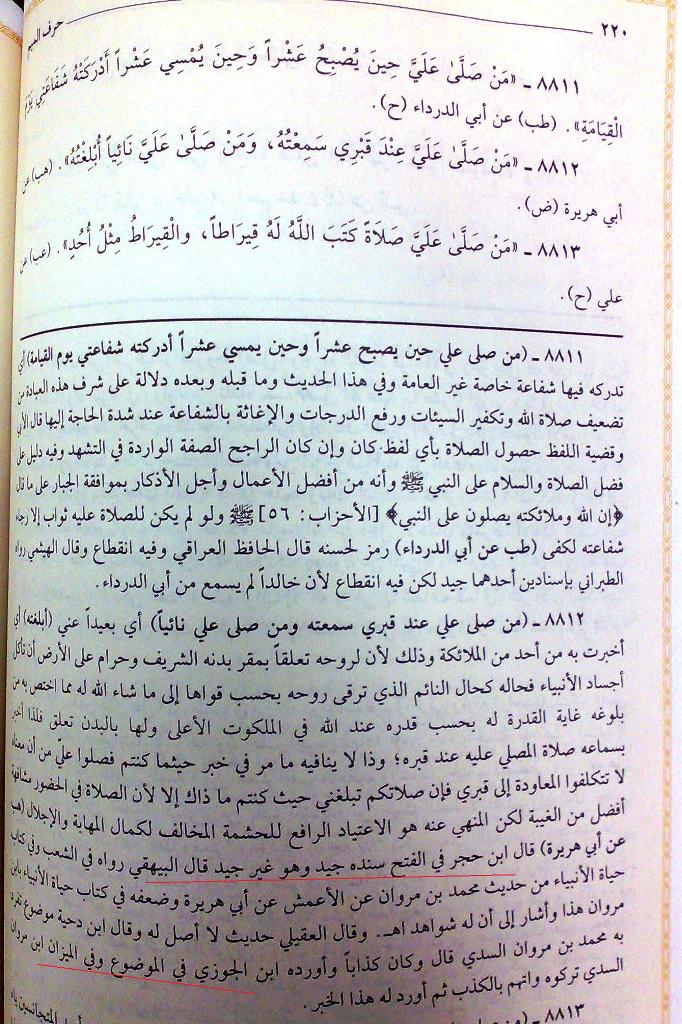 ٢٢٠
حرف الميم
٨٨١١ ـ «مَنْ صَلَّىٰ عَلَيَّ حِينَ يُصْبِحُ عَشْراً وَحِينَ يُمْسِي عَشْراً أَدْرَكَتْهُ شَفَاعَتِي يَوْمَ
الْقِيَامَةِ». (طب) عن أبي الدرداء (ح).
٨٨١٢ ـ «مَنْ صَلَّىٰ عَلَيَّ عِنْدَ قَبْرِي سَمِعْتُهُ، وَمَنْ صَلَّىٰ عَلَيَّ نَائِياً أُبْلِغْتُهُ». (هب) عن
أبي هريرة (ض).
٨٨١٣ ـ «مَنْ صَلَّىٰ عَلَيَّ صَلَاةً كَتَبَ اللَّهُ لَهُ قِيرَاطاً، والْقِيرَاطُ مِثْلُ أُحُدٍ». (عب) عن
علي (ح).
٨٨١١ ـ (من صلى علي حين يصبح عشراً وحين يمسي عشراً أدركته شفاعتي يوم القيامة) أي
تدركه فيها شفاعة خاصة غير العامة وفي هذا الحديث وما قبله وبعده دلالة على شرف هذه العبادة من
تضعيف صلاة الله وتكفير السيئات ورفع الدرجات والإغاثة بالشفاعة عند شدة الحاجة إليها قال الأبي
وقضية اللفظ حصول الصلاة بأي لفظ كان وإن كان الراجح الصفة الواردة في التشهد وفيه دليل على
فضل الصلاة والسلام على النبي ﷺ وأنه من أفضل الأعمال وأجل الأذكار بموافقة الجبار على ما قال
﴿إن الله وملائكته يصلون على النبي﴾ [الأحزاب: ٥٦] ﷺ ولو لم يكن للصلاة عليه ثواب إلا رجاء
شفاعته لكفى (طب عن أبي الدرداء) رمز لحسنه قال الحافظ العراقي وفيه انقطاع وقال الهيثمي رواه
الطبراني بإسنادين أحدهما جيد لكن فيه انقطاع لأن خالداً لم يسمع من أبي الدرداء.
٨٨١٢ ـ (من صلى علي عند قبري سمعته ومن صلى علي نائياً) أي بعيداً عني (أبلغته) أي
أخبرت به من أحد من الملائكة وذلك لأن لروحه تعلقاً بمقر بدنه الشريف وحرام على الأرض أن تأكل
أجساد الأنبياء فحاله كحال النائم الذي ترقى روحه بحسب قواها إلى ما شاء الله له مما اختص به من
بلوغه غاية القدرة له بحسب قدره عند الله في الملكوت الأعلى ولها بالبدن تعلق فلذا أخبر
بسماعه صلاة المصلي عليه عند قبره؛ وذا لا ينافيه ما مر في خبر حيثما كنتم فصلوا عليّ من أن معناه
لا تتكلفوا المعاودة إلى قبري فإن صلاتكم تبلغني حيث كنتم ما ذاك إلا لأن الصلاة في الحضور مشافهة
أفضل من الغيبة لكن المنهي عنه هو الاعتياد الرافع للحشمة المخالف لكمال المهابة والإجلال (هب
عن أبي هريرة) قال ابن حجر في الفتح سنده جيد وهو غير جيد قال البيهقي رواه في الشعب وفي كتاب
حياة الأنبياء من حديث محمد بن مروان عن الأعمش عن أبي هريرة وضعفه في كتاب حياة الأنبياء بابن
مروان هذا وأشار إلى أن له شواهد اهـ. وقال العقيلي حديث لا أصل له وقال ابن دحية موضوع تفرد
به محمد بن مروان السدي قال وكان كذاباً وأورده ابن الجوزي في الموضوع وفي الميزان ابن مروان
السدي تركوه واتهم بالكذب ثم أورد له هذا الخبر.
٨٨١٣ ـ (من